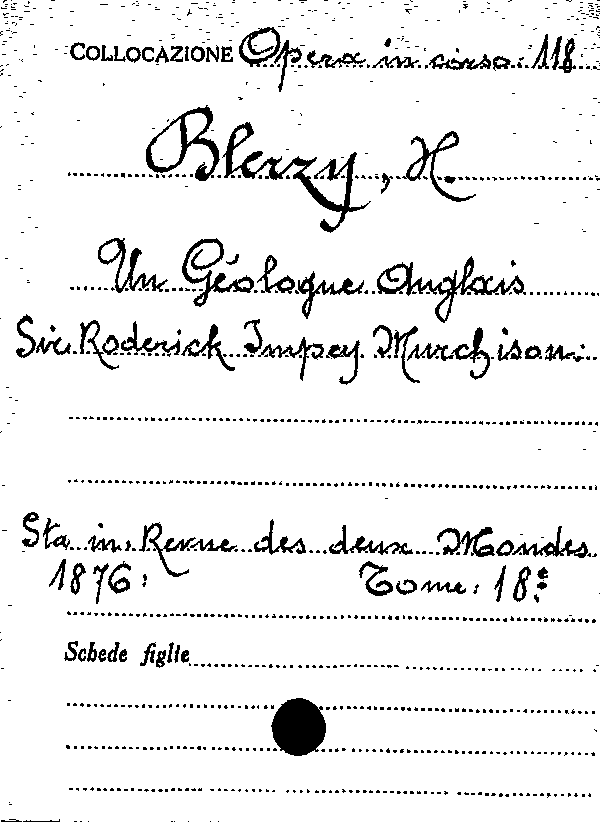 COLLOCAZIONE Opera in corso. 118
Blerzy, H.
Un Géologue Anglais
Sir. Roderick Impey Murchison.
Sta in. Revue des deux Mondes
1876. Tome. 18.e
Schede figlie